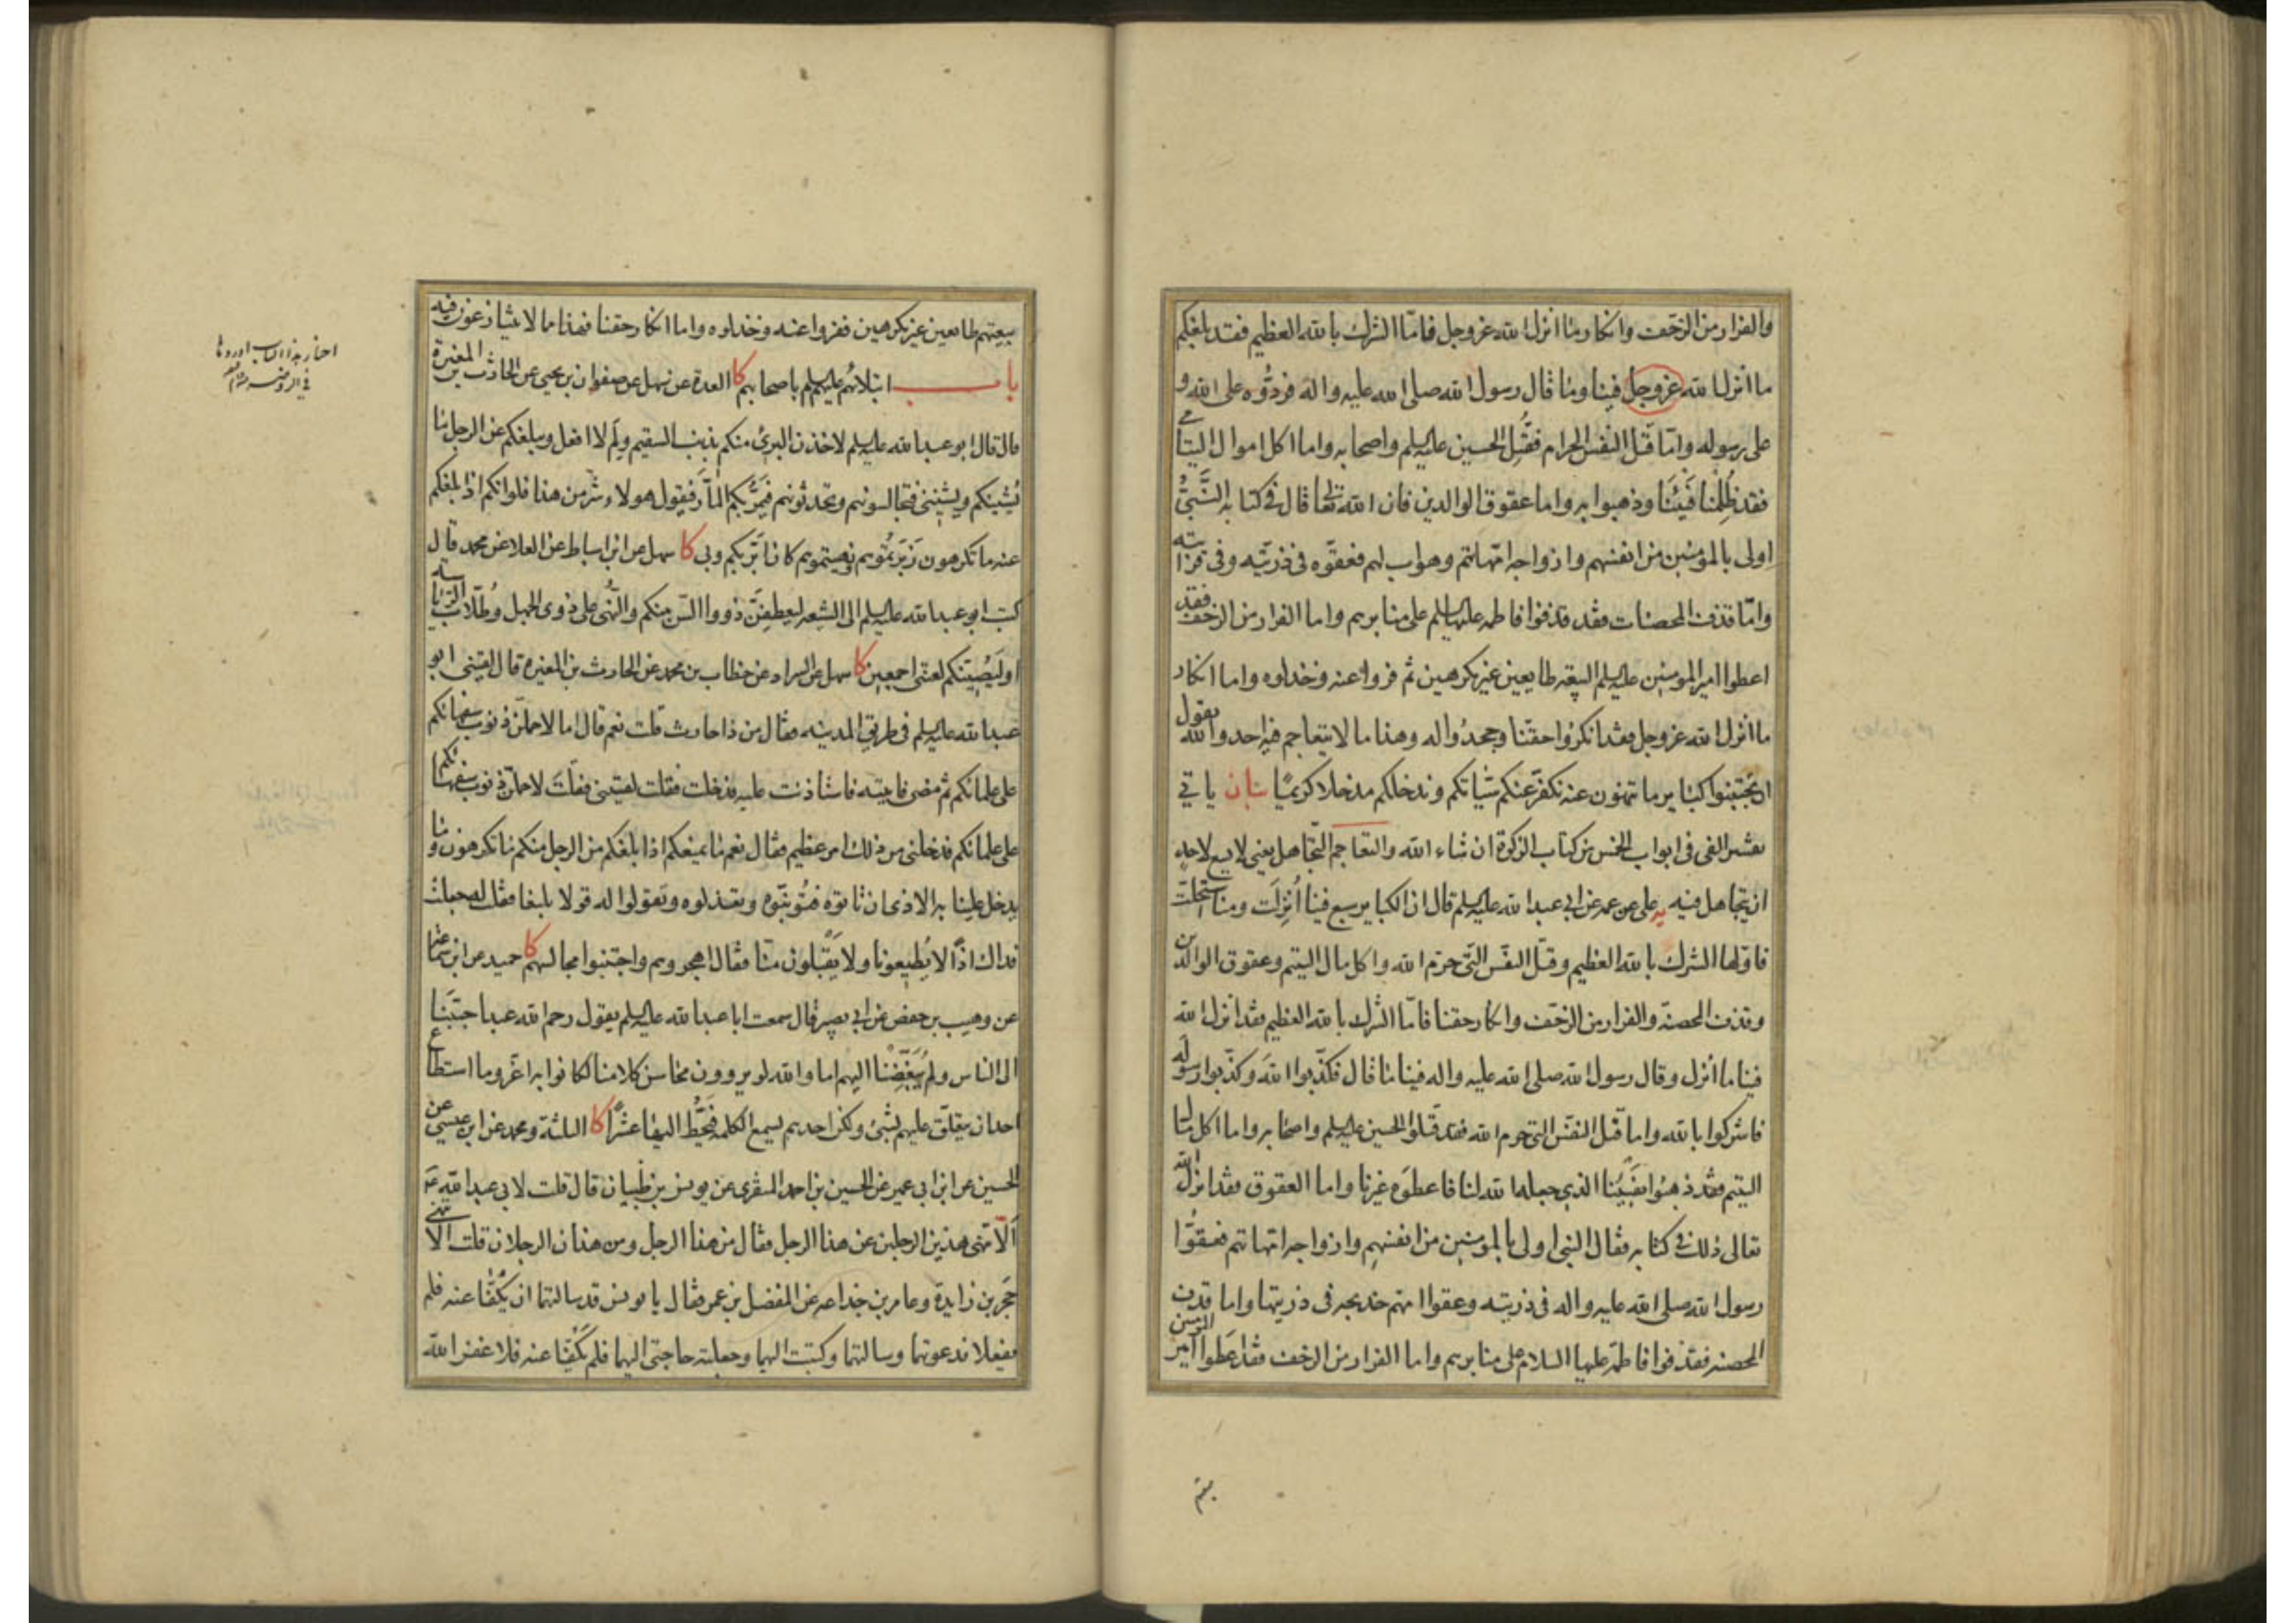 والفرار من الزحف وانكار ما انزل الله عز وجل فامّا الشرك بالله العظيم فقد بلغكم
ما انزل الله عز وجل فينا وما قال رسول الله صلى الله عليه واله فردُّوه على الله و
على رسوله وامّا قتل النفس الحرام فقُتِل الحسين عليه السلم واصحابه واما اكل اموال اليتامى
فقد ظُلِمنا فَيْئَنا وذهبوا به واما عقوق الوالدين فان الله تعالى قال في كتابه النَّبِيُّ
اولى بالمؤمنين من انفسهم وازواجه امّهاتهم وهو اب لهم فعقّوه فى ذريّته وفى قرابته
وامّا قذف المحصنات فقد قذفوا فاطمه عليها السلم على منابرهم واما الفرار من الزحف فقد
اعطوا امير المومنين عليه السلم البيعة طايعين غير مكرهين ثم فروا عنه وخذلوه واما انكار
ما انزل الله عز وجل فقد انكروا حقنا وجحدُوا له وهذا ما لا يتعاجم فيه احد والله يقول
ان تجتنبوا كبائر ما تنهون عنه نكفّر عنكم سيّاتكم وندخلكم مدخلا كريمًا بيان ياتي
تفسير الفى فى ابواب الخمس من كتاب الزكوة ان شاء الله والتعاجم التّجاهل يعني لا يسع لاحد
ان يتجاهل فيه يه على عن عمه عن ابي عبد الله عليه السلم قال ان الكبائر سبع فينا اُنزِلَت ومنا استحلّت
فاوّلها الشرك بالله العظيم وقتل النفس التّي حرّم الله واكل مال اليتيم وعقوق الوالدين
وقذف المحصنة والفرار من الزحف وانكار حقنا فامّا الشرك بالله العظيم فقد انزل الله
فينا ما انزل وقال رسول الله صلى الله عليه واله فينا ما قال فكذّبوا اللهَ وكذّبوا رسولَه
فاشركوا بالله واما قتل النفس التي حرم الله فقد قتلوا الحسين عليه السلم واصحابه واما اكل مال
اليتيم فقد ذهبُوا بفَيْئنا الذي جعله الله لنا فاعطَوه غيرنا واما العقوق فقد انزل الله
تعالى ذلك فى كتابه فقال النبى اولى بالمومنين من انفسهم وازواجه امّهاتهم فعقوا
رسول الله صلى الله عليه واله فى ذريته وعقوا امهم خديجه فى ذريتها واما قذف
المحصنه فقذفوا فاطمة عليها السلام على منابرهم واما الفرار من الزحف فقد اعطوا امير المومنين
بيعتهم طايعين غير مكرهين ففروا عنه وخذلوه واما انكار حقنا فهذا ما لا يتنازعون فيه
باب ابتلائهم عليهم السلم باصحابهم كا العدة عن سهل عن صفوان بن يحيى عن الحارث بن المغيرة
قال قال ابو عبد الله عليه السلم لاخذن البرئ منكم بذنب السقيم ولِم لا افعل ويبلغكم عن الرجل ما
يُشينكم ويشينني فتجالسونهم وتحدثونهم فيَمُرُّ بكم المآرّ فيقول هولاء شرّ من هذا فلو انكم اذا بلغكم
عنه ما تكرهون زَبَرتُموهم ونهيتموهم كان ابَرّ بكم وبي كا سهل عن ابن اسباط عن العلا عن محمد قال
كتب ابو عبد الله عليه السلم الى الشيعه ليعطِفنّ ذووا السّن منكم والنُّهى على ذوى الجهل وطُلّاب الرّياسة
او لَيُصيبَنّكم لعنتى اجمعين كا سهل عن السراد عن خطاب بن محمد عن الحارث بن المغيرة قال لقيني ابو
عبد الله عليه السلم فى طريق المدينه فقال من ذا حارث قلت نعم قال اما لاحملنّ ذنوب سفهائكم
على علمائكم ثم مضى فاتيته فاستاذنت عليه فدخلت فقلت لقيتنى فقلتَ لاحملنّ ذنوب سفهائكم
على علمائكم فدخلنى من ذلك امر عظيم فقال نعم ما يمنعكم اذا بلغكم من الرجل منكم ما تكرهون وما
يدخل علينا به الاذى ان تاتوه فتُونّبوه وتعذلوه وتقولوا له قولا بليغا فقلت له جعلت
فداك اذًا لا يُطيعونا ولا يَقْبلون منّا فقال اهجروهم واجتنبوا مجالسهم كا حميد عن ابن سماعة
عن وهيب بن حفص عن ابي بصير قال سمعت ابا عبد الله عليه السلم يقول رحم الله عبدا حببّنا
الى الناس ولم يُبَغِّضنا اليهم اما والله لو يروون محاسن كلامنا لكانوا به اعَزّ وما استطاع
احد ان يتعلّق عليهم بشئ ولكن احدهم يسمع الكلمة فيَحُطّ اليها عشرًا كا الثلثة ومحمد عن ابن عيسى عن
الحسين عن ابن ابي عمير عن الحسين بن احمد المنقرى عن يونس بن ظبيان قال قلت لابي عبد الله ع
اَلَا تنهى هذين الرجلين عن هذا الرجل فقال من هذا الرجل ومن هذان الرجلان قلت الا تنهى
حجر بن زايدة وعامر بن جذاعه عن المفضل بن عمر فقال يا يونس قد سالتهما ان يكُفّا عنه فلم
يفعلا فدعوتهما وسالتهما وكتبت اليهما وجعلته حاجتى اليهما فلم يكُفّا عنه فلا غفر الله